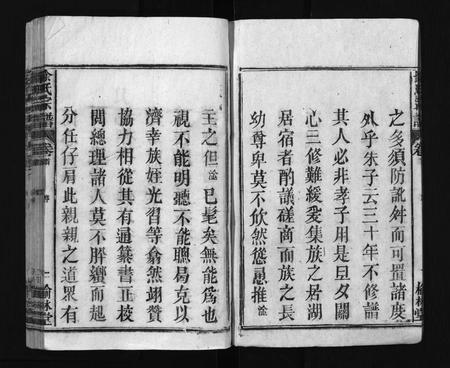 之多須防訛舛而可置諸度
外乎朱子云三十年不修譜
其人必非孝子用是旦夕關
心三修難緩爰集族之居湖
居宿者酌議磋商而族之長
幼尊卑莫不欣然慫恿推淦
主之但淦已髦矣無能爲也
視不能明聽不能聰局克以
濟幸族姪光習等翕然翊贊
協力相從其有通纂書正校
閱總理諸人莫不胼蠁而起
分任仔肩此親親之道眾有
氏宗譜
卷首
一
榆林堂